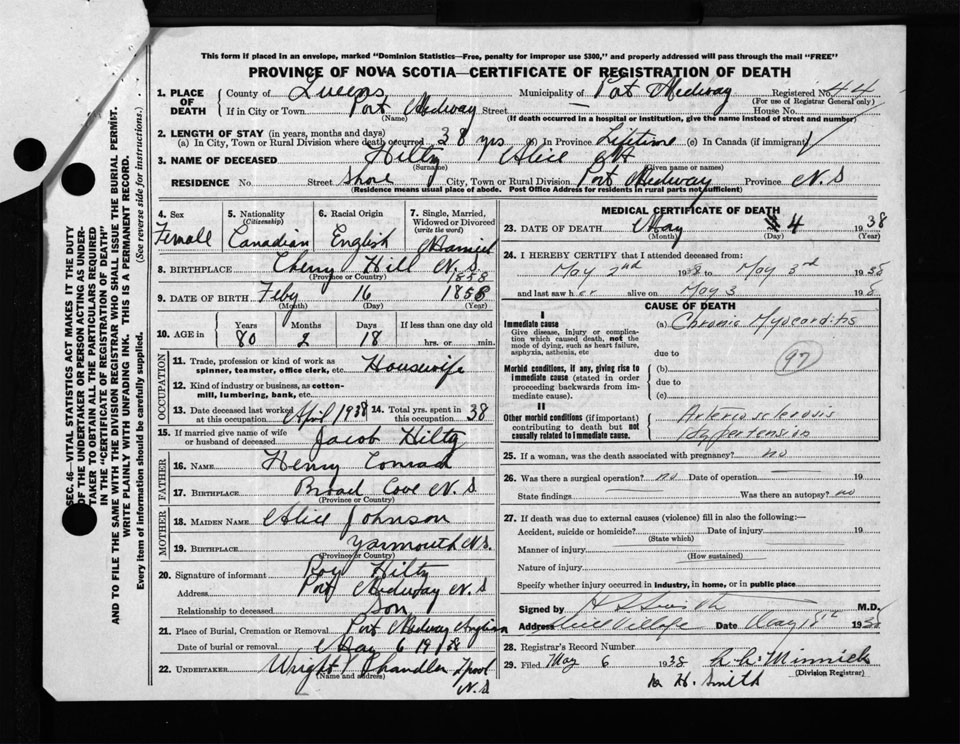 This form if placed in an envelope, marked "Dominion Statistics—Free, penalty for improper use $300," and properly addressed will pass through the mail "FREE"
PROVINCE OF NOVA SCOTIA—CERTIFICATE OF REGISTRATION OF DEATH
1. PLACE OF DEATH County of Queens Municipality of Port Medway Registered No. 44
(For use of Registrar General only)
If in City or Town Port Medway Street — House No.
(Name) (If death occurred in a hospital or institution, give the name instead of street and number)
2. LENGTH OF STAY (in years, months and days)
(a) In City, Town or Rural Division where death occurred 38 yrs (b) In Province Lifetime (c) In Canada (if immigrant)
3. NAME OF DECEASED Hiltz Alice H
(Surname) (Given name or names)
RESIDENCE No. Street Shore City, Town or Rural Division Port Medway Province N.S
(Residence means usual place of abode. Post Office Address for residents in rural parts not sufficient)
4. Sex 5. Nationality 6. Racial Origin 7. Single, Married,
(Citizenship) Widowed or Divorced
(write the word)
Female Canadian English Married
8. BIRTHPLACE Cherry Hill N.S.
(Province or Country) 1858
9. DATE OF BIRTH Feby 16 1858
(Month) (Day) (Year)
10. AGE in Years Months Days If less than one day
80 2 18 hrs. or min.
OCCUPATION
11. Trade, profession or kind of work as
spinner, teamster, office clerk, etc. Housewife
12. Kind of industry or business, as cotton-
mill, lumbering, bank, etc.
13. Date deceased last worked at this occupation April 1938 14. Total yrs. spent in this occupation 38
15. If married give name of wife
or husband of deceased Jacob Hiltz
FATHER
16. NAME Henry Conrad
17. BIRTHPLACE Broad Cove N.S
(Province or Country)
MOTHER
18. MAIDEN NAME Alice Johnson
19. BIRTHPLACE Yarmouth N.S.
(Province or Country)
20. Signature of informant Roy Hiltz
Address Port Medway N.S
Relationship to deceased Son
21. Place of Burial, Cremation or Removal Port Medway
Date of burial or removal May 6 1938
22. UNDERTAKER Wright Chandler L'pool
(Name and address) N.S
MEDICAL CERTIFICATE OF DEATH
23. DATE OF DEATH May 4 1938
(Month) (Day) (Year)
24. I HEREBY CERTIFY that I attended deceased from:
May 2nd 1938 to May 3rd 1938
and last saw her alive on May 3 1938
CAUSE OF DEATH
I
Immediate cause (a) Chronic Myocarditis
Give disease, injury or complica-
tion which caused death, not the
mode of dying, such as heart failure,
asphyxia, asthenia, etc due to
97
Morbid conditions, if any, giving rise to (b)
immediate cause (stated in order due to
proceeding backwards from im-
mediate cause). (c)
II
Other morbid conditions (if important) Arteriosclerosis
contributing to death but not
causally related to immediate cause. Hypertension
25. If a woman, was the death associated with pregnancy? no
26. Was there a surgical operation? no Date of operation 19
State findings Was there an autopsy? no
27. If death was due to external causes (violence) fill in also the following:—
Accident, suicide or homicide? Date of injury 19
(State which)
Manner of injury
(How sustained)
Nature of injury
Specify whether injury occurred in industry, in home, or in public place
Signed by Smith M.D.
Address Mill Village Date May 1938
28. Registrar's Record Number
29. Filed May 6 1938 Minnick
(Division Registrar)
H. Smith
SEC. 46—VITAL STATISTICS ACT MAKES IT THE DUTY
OF THE UNDERTAKER OR PERSON ACTING AS UNDER-
TAKER TO OBTAIN ALL THE PARTICULARS REQUIRED
IN THE "CERTIFICATE OF REGISTRATION OF DEATH"
AND TO FILE THE SAME WITH THE DIVISION REGISTRAR WHO SHALL ISSUE THE BURIAL PERMIT.
WRITE PLAINLY WITH UNFADING INK. THIS IS A PERMANENT RECORD.
Every item of information should be carefully supplied. (See reverse side for instructions.)